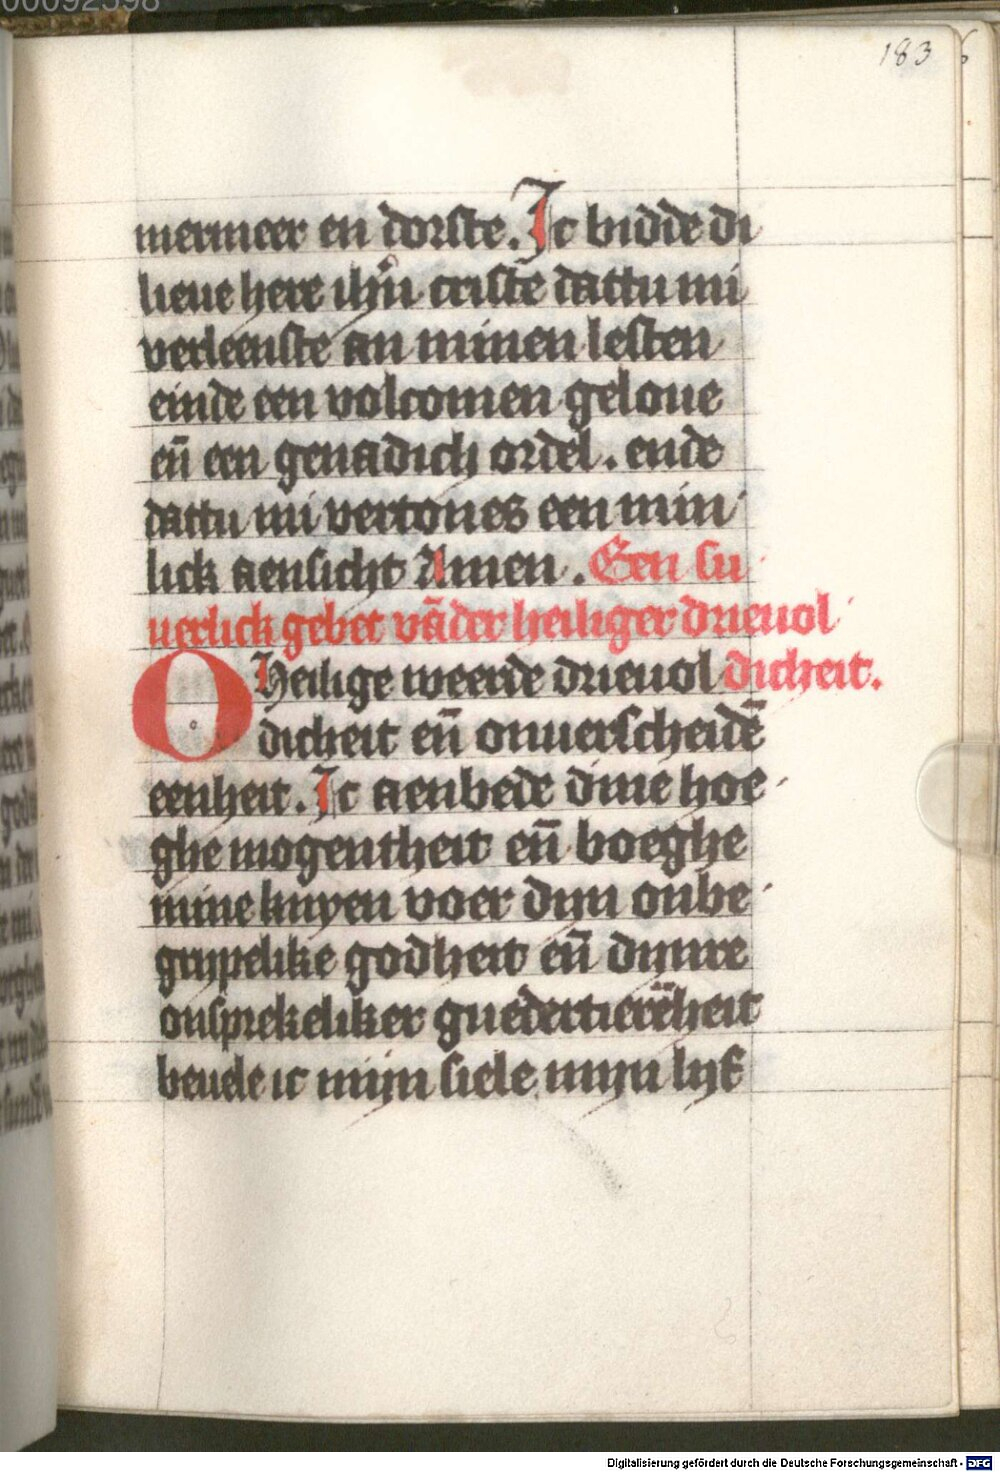 00092598
183
mermeer en dorste. Jc bidde di
lieue here ihũ criste dattu mi
verleenste an minen lesten
einde een volcomen geloue
eñ een genadich ordel. ende
dattu mi vertones een min
lick aensicht Amen. Een su
uerlick gebet vãder heiliger drieuol
O Heilige weerde drieuol dicheit.
dicheit eñ onuerscheidẽ
eenheit. Jc aenbede dine hoe
ghe mogentheit eñ boeghe
mine knyen voer dijn onbe
gripelike godheit eñ dijnre
onsprekeliker guedertierẽheit
beuele ic mijn siele mijn lijf
Digitalisierung gefördert durch die Deutsche Forschungsgemeinschaft - DFG